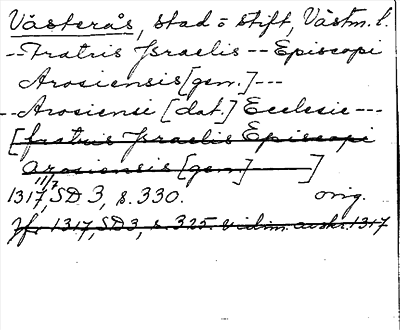 Västerås, stad o stift, Västm. l.
-- Fratris Israelis -- Episcopi
Arosiensis [gen.] ---
-- Arosiensi [dat.] Ecclesie ---
[fratris Israelis Episcopi
Arosiensis [gen] ——]
1317 11/7, SD 3, s. 330. orig.
Jfr 1317, SD 3, s. 325. vidim. 1317